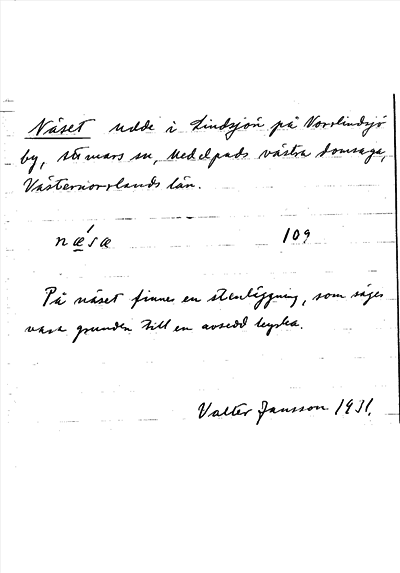 Näset udde i Lindsjön på Norrlindsjö
by, Sti­mars sn, Medelpads västra domsaga,
Västernorrlands län.
næ´sæ 109
På näset finnes en stenläggning, som säges
vara grunden till en avsedd kyrka.
Valter Jansson 1931.